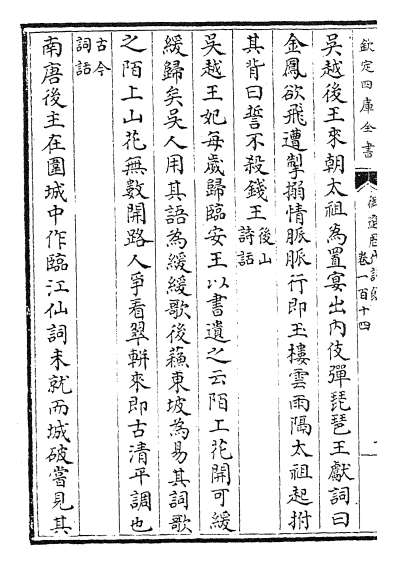 欽定四庫全書
卷一百十四
吳越後王來朝太祖為置宴出內伎彈琵琶王獻詞曰
金鳳欲飛遭掣搦情脈脈行即玉樓雲雨隔太祖起拊
其背曰誓不殺錢王後山詩話
吳越王妃每歲歸臨安王以書遺之云陌上花開可緩
緩歸矣吳人用其語為緩緩歌後蘇東坡為易其詞歌
之陌上山花無數開路人爭看翠軿來即古清平調也
古今詞話
南唐後主在圍城中作臨江仙詞未就而城破嘗見其